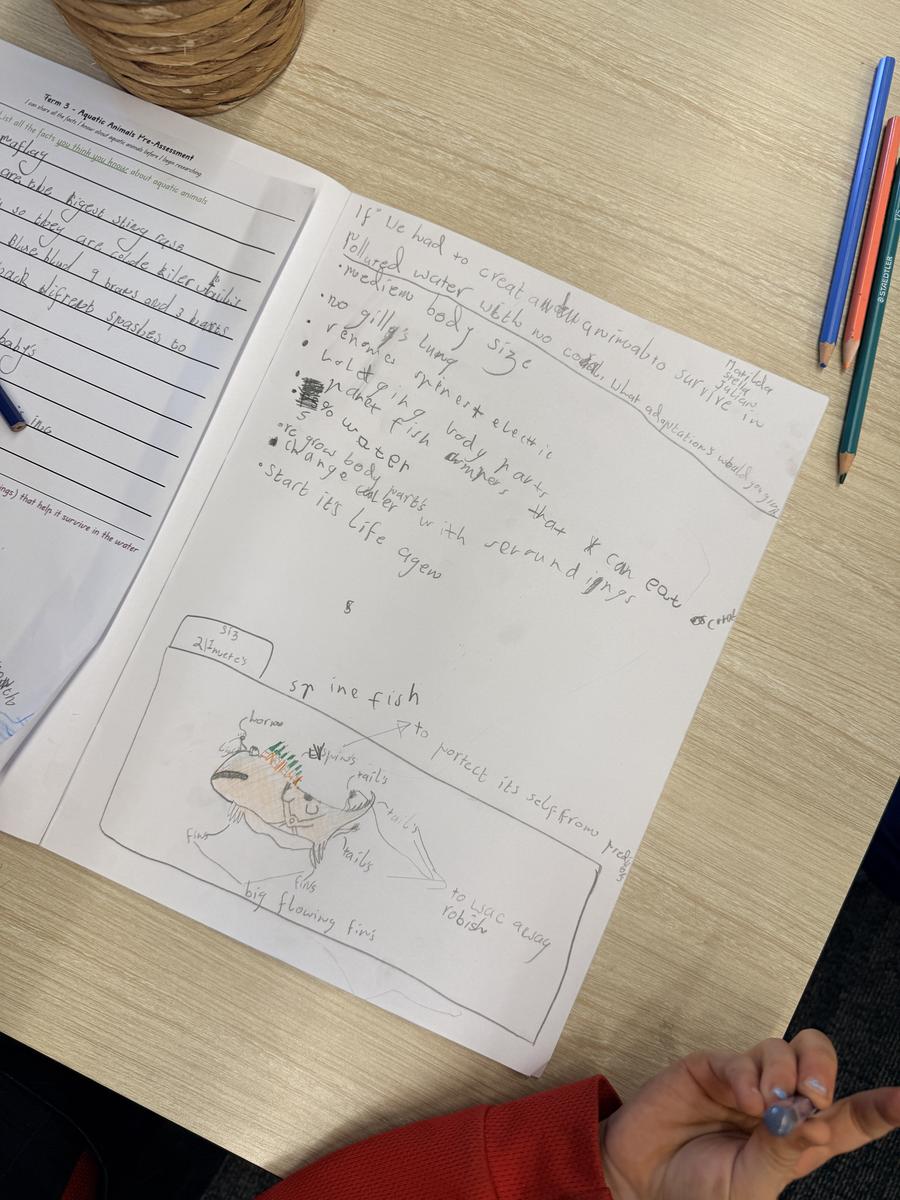 Term 3 - Aquatic Animals Pre-Assessment
I can share all the facts I know about aquatic animals before I begin researching.
List all the facts you think you know about aquatic animals
are the bigest sting rase
so they are calde kiler
Blue blud 9 brans and 3 harts
back difrent spashes to
baby's
ings) that help it survive in the water
If We had to creat an animal to survive in
Pollured water with no coral, what adaptations would you give
Matilda
Stella
Julian
• mediem body size
• no gilly's lung
• venomes spines + electric
• holdging body parts
• nanet fish that can eat
• 5% water
• re grow body parts
• change caler with seroundings
• start it's life agen
8
Si3
spine fish
horne
spins
to portect its self from predetors
tail's
tail's
tail's
fins
fins
big flowing fins
to wac away
robish
STAEDTLER